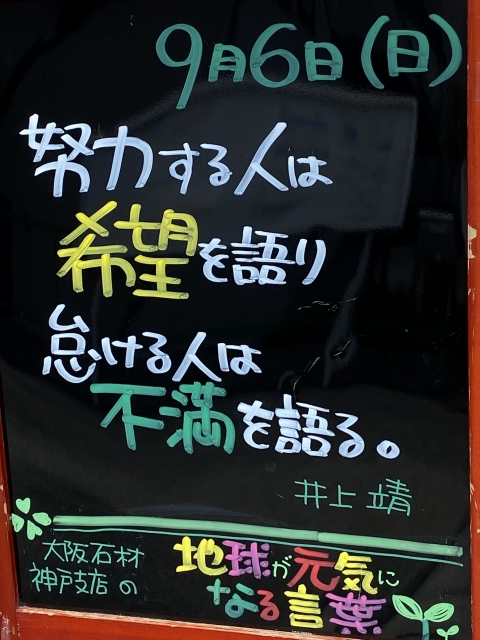 9月6日(日)
努力する人は
希望を語り
怠ける人は
不満を語る。
井上 靖
大阪石材
神戸支店の
地球が元気に
なる言葉